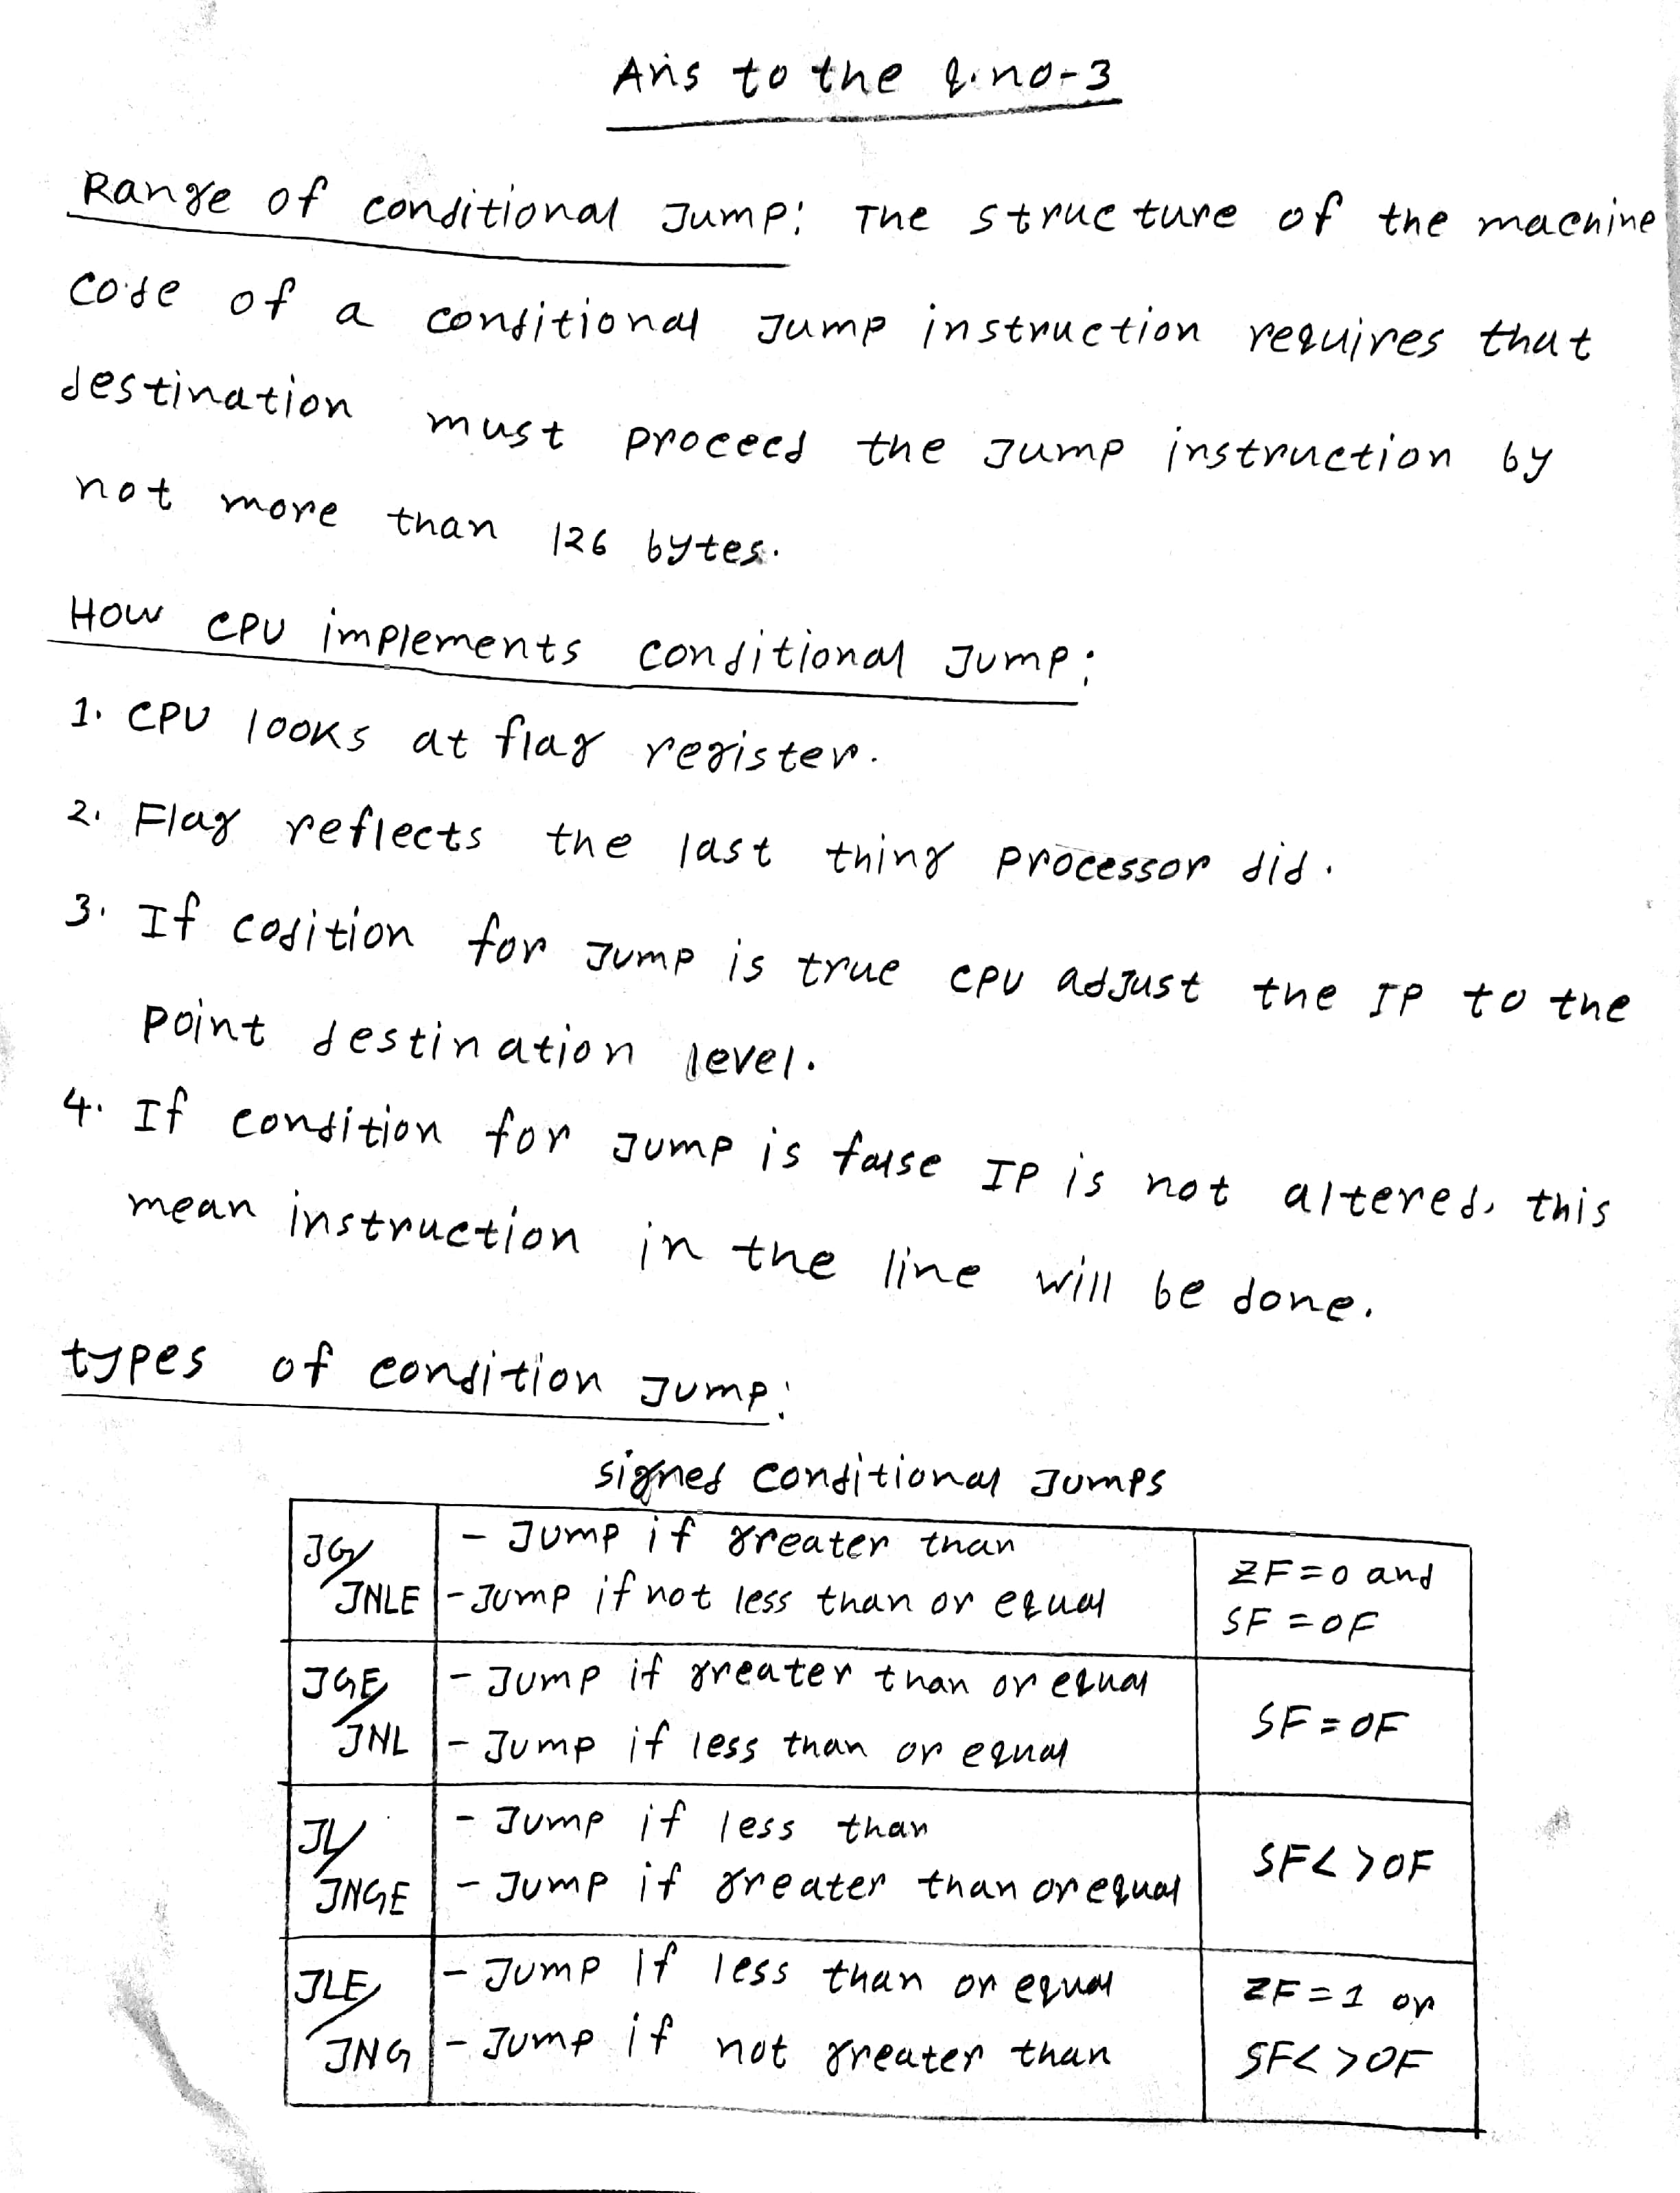 Ans to the q.no-3
Range of conditional Jump: The structure of the machine
code of a conditional Jump instruction requires that
destination must proceed the Jump instruction by
not more than 126 bytes.
How CPU implements conditional Jump:
1. CPU looks at flag register.
2. Flag reflects the last thing processor did.
3. If codition for Jump is true CPU adjust the IP to the
point destination level.
4. If condition for Jump is false IP is not altered, this
mean instruction in the line will be done.
types of condition Jump:
signed conditional Jumps
JG/ JNLE
- Jump if greater than
- Jump if not less than or equal
ZF=0 and
SF=OF
JGE/ JNL
- Jump if greater than or equal
- Jump if less than or equal
SF=OF
JL/ JNGE
- Jump if less than
- Jump if greater than or equal
SF<>OF
JLE/ JNG
- Jump if less than or equal
- Jump if not greater than
ZF=1 or
SF<>OF